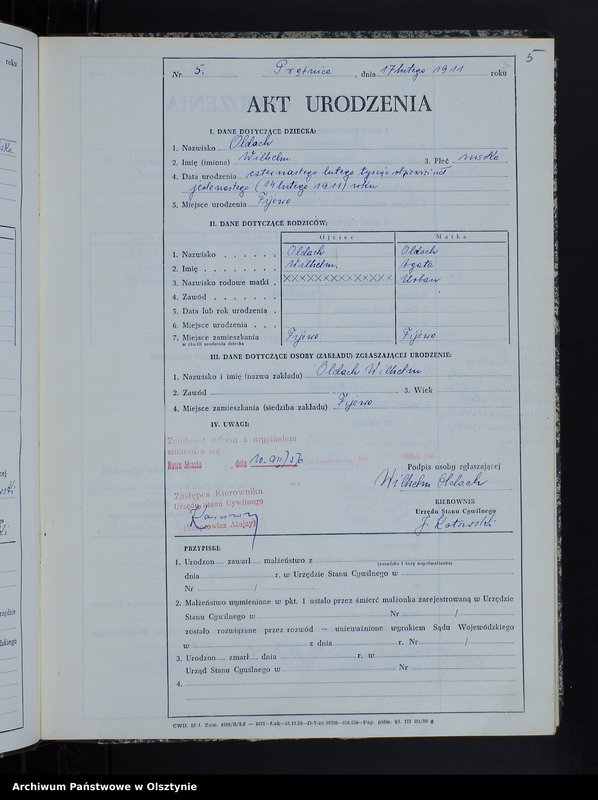 5
Nr 5. Prątnica, dnia 17 lutego 1911 roku
AKT URODZENIA
I. DANE DOTYCZĄCE DZIECKA:
1. Nazwisko Oldach
2. Imię (imiona) Wilhelm 3. Płeć męska
4. Data urodzenia czternastego lutego tysiąc dziewięćset
jedenastego (14 lutego 1911) roku
5. Miejsce urodzenia Fijewo
II. DANE DOTYCZĄCE RODZICÓW:
Ojciec Matka
1. Nazwisko Oldach Oldach
2. Imię Wilhelm Agata
3. Nazwisko rodowe matki XXXXXXXXXXX Urban
4. Zawód
5. Data lub rok urodzenia
6. Miejsce urodzenia
7. Miejsce zamieszkania Fijewo Fijewo
w chwili urodzenia dziecka
III. DANE DOTYCZĄCE OSOBY (ZAKŁADU) ZGŁASZAJĄCEJ URODZENIE:
1. Nazwisko i imię (nazwa zakładu) Oldach Wilhelm
2. Zawód 3. Wiek
4. Miejsce zamieszkania (siedziba zakładu) Fijewo
IV. UWAGI:
Zgodność odpisu z oryginałem
stwierdza się
Nowe Miasto, dnia 10.VII/56
Podpis osoby zgłaszającej
Wilhelm Oldach
Zastępca Kierownika
Urzędu Stanu Cywilnego
KIEROWNIK
Urzędu Stanu Cywilnego
J. Kotowski
PRZYPISKI:
1. Urodzon zawarł małżeństwo z
(nazwisko i imię współmałżonka)
dnia r. w Urzędzie Stanu Cywilnego w
Nr /
2. Małżeństwo wymienione w pkt. 1 ustało przez śmierć małżonka zarejestrowaną w Urzędzie
Stanu Cywilnego w Nr /
zostało rozwiązane przez rozwód — unieważnione wyrokiem Sądu Wojewódzkiego
w z dnia r. Nr /
3. Urodzon zmarł dnia r. w
Urząd Stanu Cywilnego w Nr
4.
Archiwum Państwowe w Olsztynie